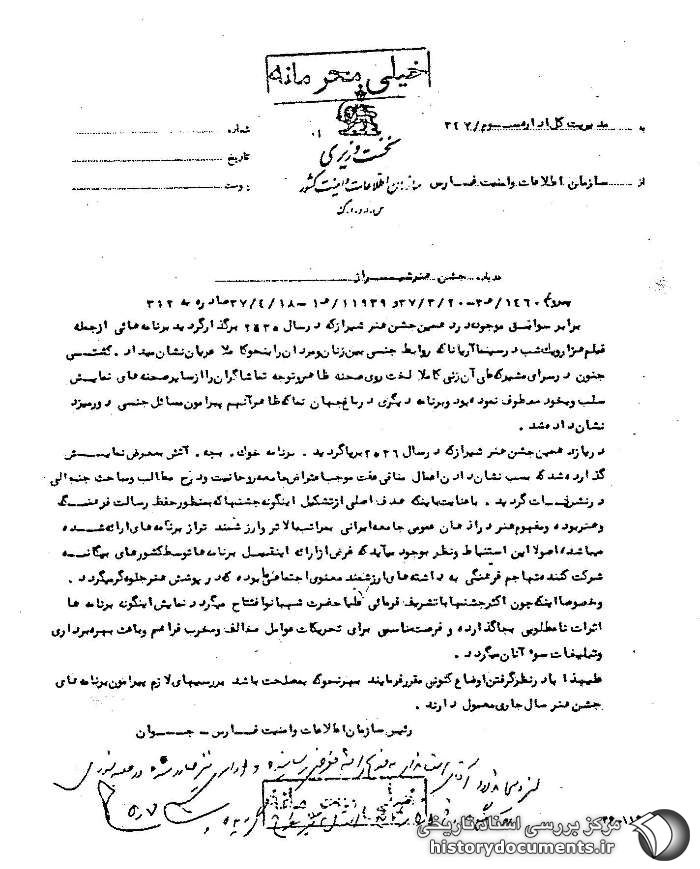 خیلی محرمانه
به مدیریت کل اداره سوم/ ۳۴۲
شماره
نخست وزیری
تاریخ
از سازمان اطلاعات وامنیت فارس
سازمان اطلاعات وامنیت کشور
پیوست
س.ا.و.ا.ک
درباره جشن هنر شیراز
برابر سوابق موجود در دهمین جشن هنر شیراز که در سال ۲۵۳۵ برگذار گردید برنامه هائی از جمله
فیلم هزار و یک شب در سینما آریانا که روابط جنسی بین زنان و مردان را بنحو کاملا عریان نشان میداد . کشتی
جنون در سرای مشیر که طی آن زنی کاملا لخت روی صحنه ظاهر و توجه تماشاگران را از سایر صحنه های نمایش
سلب و بخود معطوف نموده بود و برنامه دیگری در باغ جهان نما که ظاهرا آنهم پیرامون مسائل جنسی دور میزد
نشان داده شد .
در یازدهمین جشن هنر شیراز که در سال ۲۵۳۶ برپا گردید . برنامه خوک . بچه . آتش بمعرض نمایش
گذارده شد که بسبب نشان دادن اعمال منافی عفت موجب اعتراض جامعه روحانیت و درج مطالب و مباحث جنجالی
در نشریات گردید . با عنایت باینکه هدف اصلی از تشکیل اینگونه جشنها که بمنظور حفظ رسالت فرهنگ
و هنر بوده و مفهوم هنر در اذهان عمومی جامعه ایرانی بمراتب بالاتر و ارزشمند تر از برنامه های ارائه شده
میباشد، اصولا این استنباط و نظر بوجود میآید که غرض از ارائه اینقبیل برنامه ها توسط کشورهای بیگانه
شرکت کننده تهاجم فرهنگی به داشته های ارزشمند معنوی اجتماعی بوده که در پوشش هنر جلوه گر میگردد .
و خصوصا اینکه چون اکثر جشنها با تشریف فرمائی علیا حضرت شهبانو افتتاح میگردد نمایش اینگونه برنامه ها
اثرات نامطلوبی بجا گذارده و فرصت مناسبی برای تحریکات عوامل مخالف و مخرب فراهم و باعث بهره برداری
و تبلیغات سوء آنان میگردد .
علیهذا با در نظر گرفتن اوضاع کنونی مقرر فرمایند بهر نحو که بمصلحت باشد بررسیهای لازم پیرامون برنامه های
جشن هنر سال جاری معمول دارند .
رئیس سازمان اطلاعات وامنیت فارس - جوان
خیلی محرمانه
مرکز بررسی اسناد تاریخی
historydocuments.ir